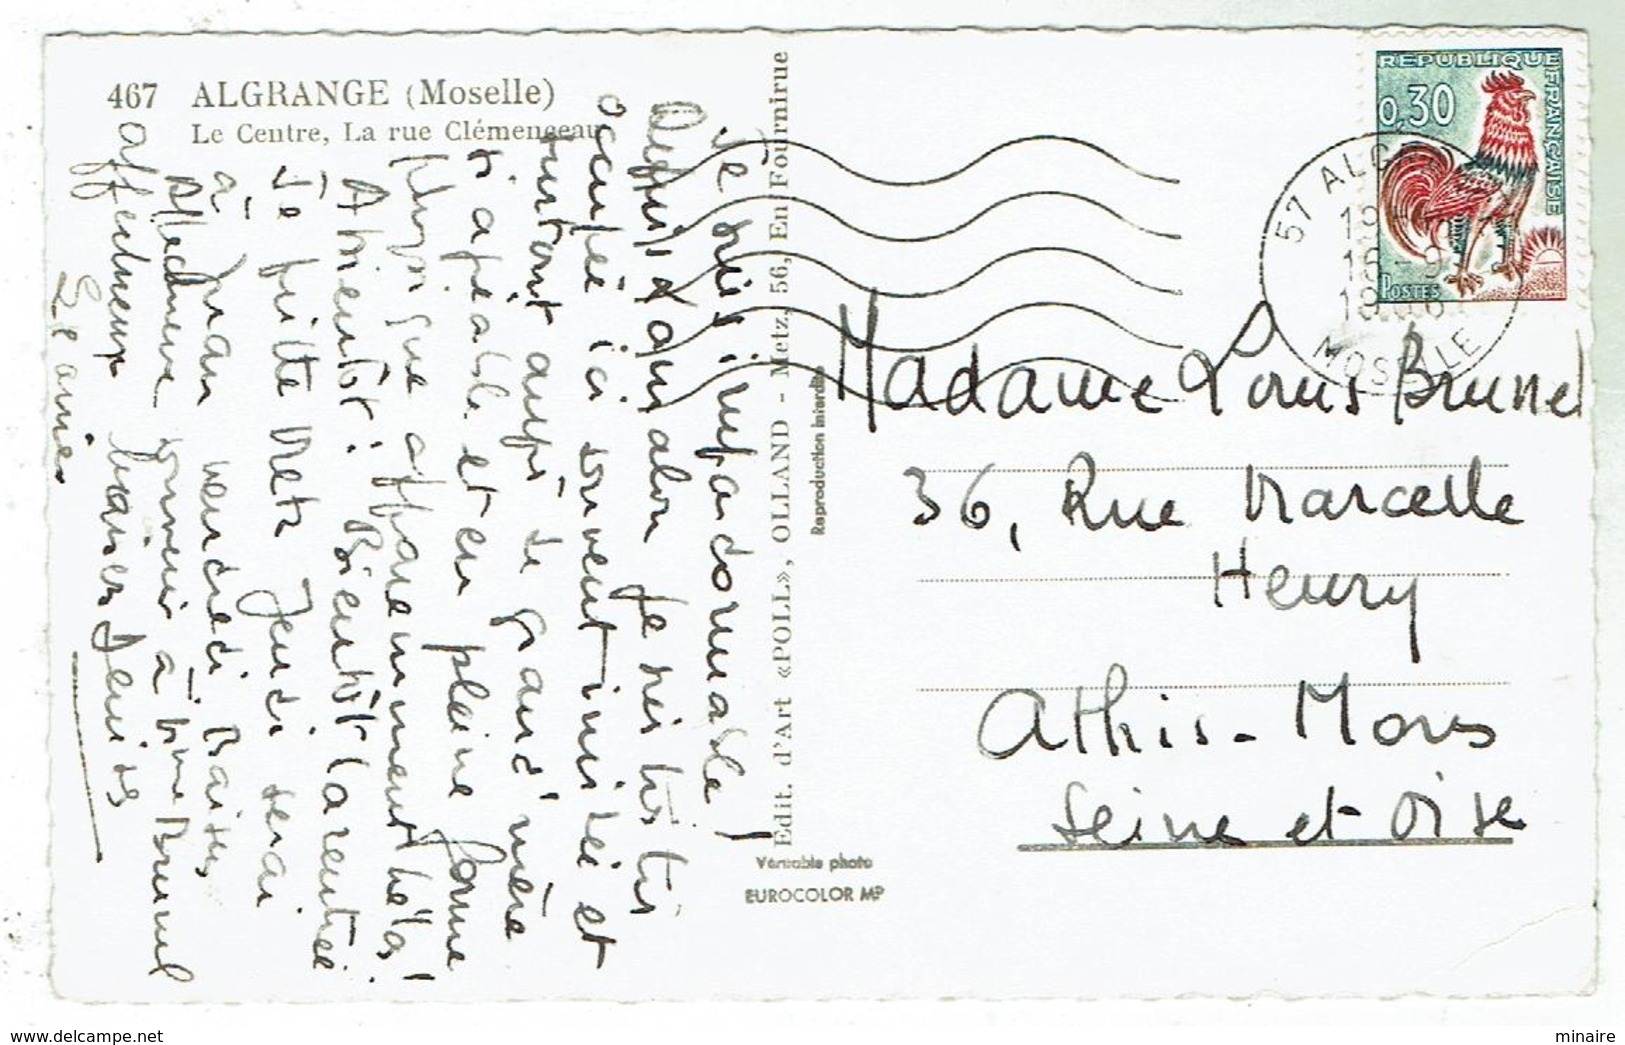 467 ALGRANGE (Moselle)
Le Centre, La rue Clémenceau
Je suis impardonnable!
Depuis Louis
je suis très
occupée ici souvent invitée et
surtout auprès de grand'mère
si agréable et en pleine forme
physique apparemment hélas!
A bientôt! Bientôt la rentrée
Je quitte Metz Jeudi serai
à vendredi. Baisers
Affectueux souvenir à Mme Brunel
affectueux baisers Denise
Edit. d'Art «POLL», OLLAND - Metz, 56, En Fournirue
Reproduction interdite
Véritable photo
EUROCOLOR MP
REPUBLIQUE FRANÇAISE
0,30
POSTES
57 ALG
MOSELLE
Madame Louis Brunel
36, Rue Marcelle
Henry
Athis-Mons
Seine et Oise
delcampe.net
minaire